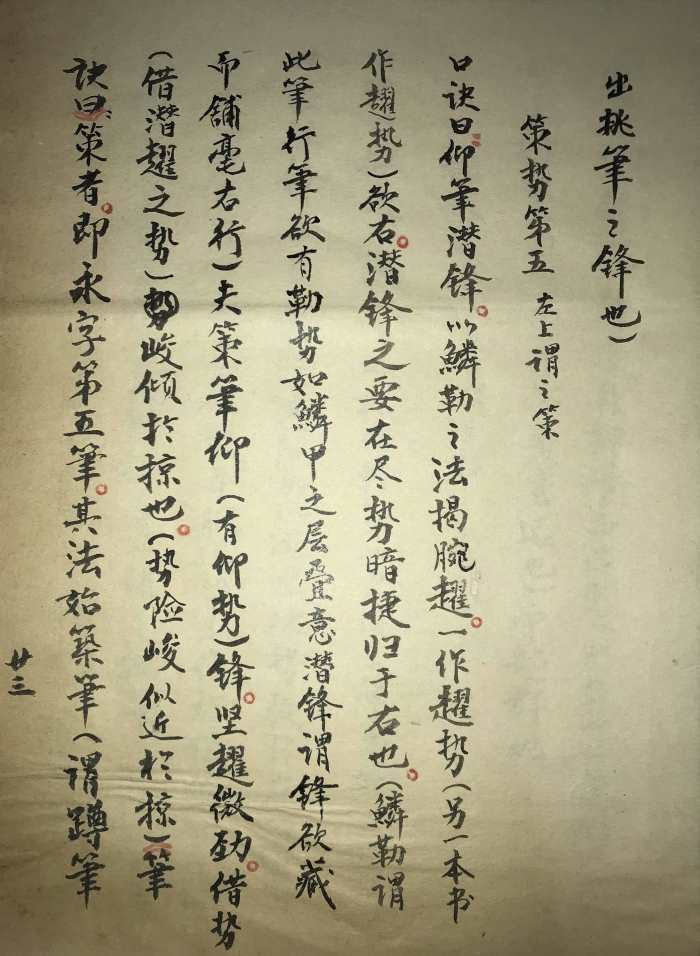 出挑筆之鋒也）
策势第五 左上谓之策
口诀曰仰筆潜锋。以鳞勒之法揭腕趯。一作趯势（另一本书
作趯势）欲右。潜锋之要在尽势暗捷归于右也。（鳞勒谓
此筆行筆欲有勒势如鳞甲之层叠意潜锋谓锋欲藏
而舖毫右行）夫策筆仰（有仰势）锋。坚趯微劲。借势
（借潜趯之势）峻倾於掠也。（势险峻似近於掠）筆
诀曰：策者。即永字第五筆。其法始築筆（谓蹲筆
廿三